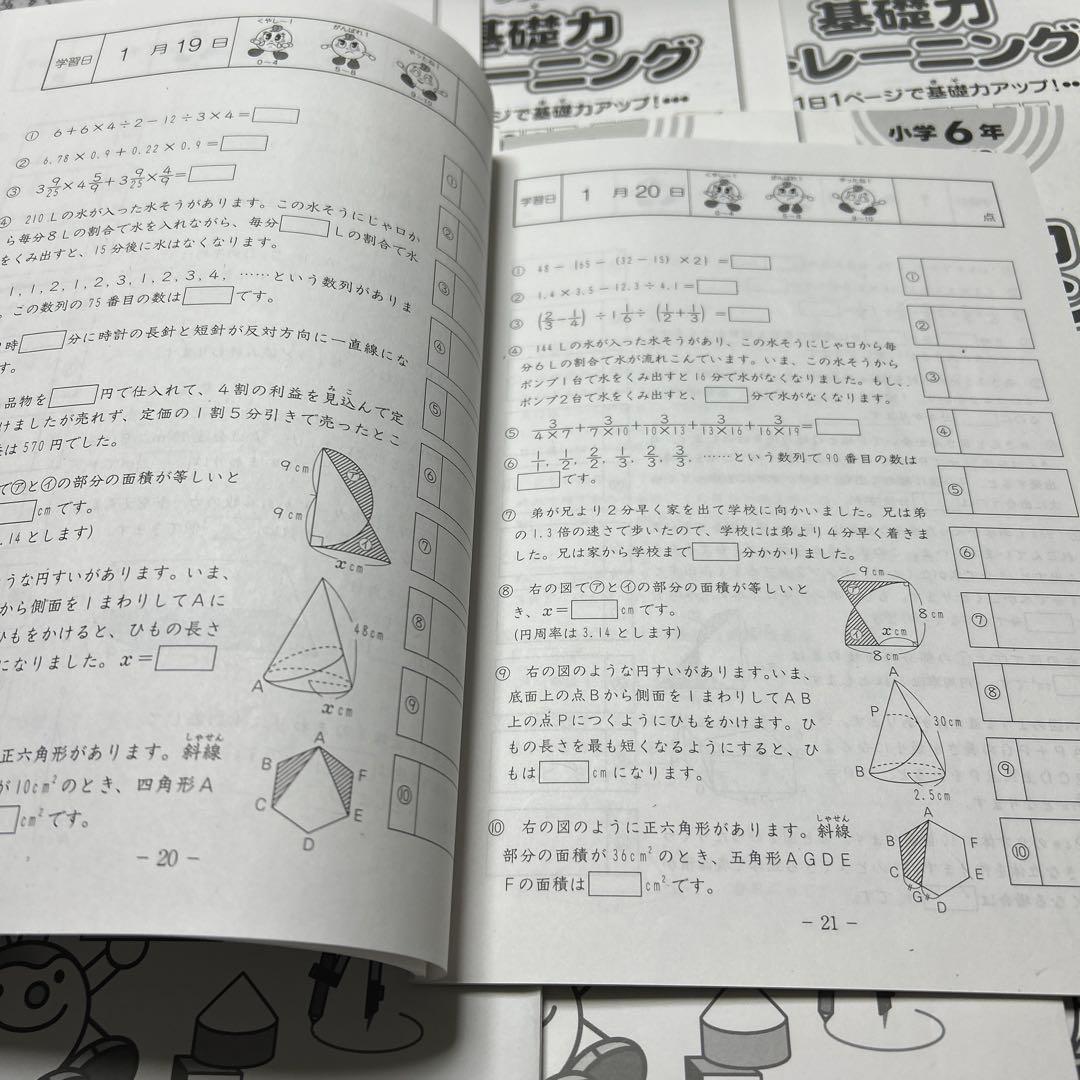 学習日 1月19日
くやし〜!
0−4
がんばれ!
5−8
やったね!
9−10
① 6+6×4÷2−12÷3×4=
② 6.78×0.9+0.22×0.9=
③ 3 9/25×4 5/9+3 9/25×4/9=
④ 210Lの水が入った水そうがあります。この水そうにじゃ口か
ら毎分8Lの割合で水を入れながら、毎分 Lの割合で水
をくみ出すと、15分後に水はなくなります。
1, 1, 2, 1, 2, 3, 1, 2, 3, 4, ……という数列がありま
。この数列の75番目の数は です。
時 分に時計の長針と短針が反対方向に一直線にな
す。
品物を 円で仕入れて、4割の利益を見込んで定
けましたが売れず、定価の1割5分引きで売ったとこ
は570円でした。
で㋐と㋑の部分の面積が等しいと
cmです。
.14とします)
9cm
9cm
xcm
うな円すいがあります。いま、
から側面を1まわりしてAに
ひもをかけると、ひもの長さ
になりました。x=
48cm
A
xcm
正六角形があります。斜線
しゃせん
が10cm²のとき、四角形A
cm²です。
A
B
F
C
E
D
①
②
③
④
⑤
⑥
⑦
⑧
⑨
⑩
− 20 −
学習日 1月20日
くやし〜!
0−4
がんばれ!
5−8
やったね!
9−10
点
① 48−{65−(32−15)×2}=
② 1.4×3.5−12.3÷4.1=
③ (2/3−1/4)÷1 1/6÷(1/2+1/3)=
④ 144Lの水が入った水そうがあり、この水そうにじゃ口から毎
分6Lの割合で水が流れこんでいます。いま、この水そうから
ポンプ1台で水をくみ出すと16分で水がなくなりました。もし、
ポンプ2台で水をくみ出すと、 分で水がなくなります。
⑤ 3/4×7+3/7×10+3/10×13+3/13×16+3/16×19=
⑥ 1/1, 1/2, 2/2, 1/3, 2/3, 3/3, ……という数列で90番目の数は
です。
⑦ 弟が兄より2分早く家を出て学校に向かいました。兄は弟
の1.3倍の速さで歩いたので、学校には弟より4分早く着きま
した。兄は家から学校まで 分かかりました。
⑧ 右の図で㋐と㋑の部分の面積が等しいと
き、x= cmです。
(円周率は3.14とします)
9cm
8cm
xcm
8cm
⑨ 右の図のような円すいがあります。いま、
底面上の点Bから側面を1まわりしてAB
上の点Pにつくようにひもをかけます。ひ
もの長さを最も短くなるようにすると、ひ
もは cmになります。
A
P
30cm
B
2.5cm
⑩ 右の図のように正六角形があります。斜線
しゃせん
部分の面積が36cm²のとき、五角形AGDE
Fの面積は cm²です。
A
B
F
C
E
G
D
①
②
③
④
⑤
⑥
⑦
⑧
⑨
⑩
− 21 −
基礎力
ーニング
1日1ページで基礎力アップ!…
基礎力
トレーニング
1日1ページで基礎力アップ!…
小学6年